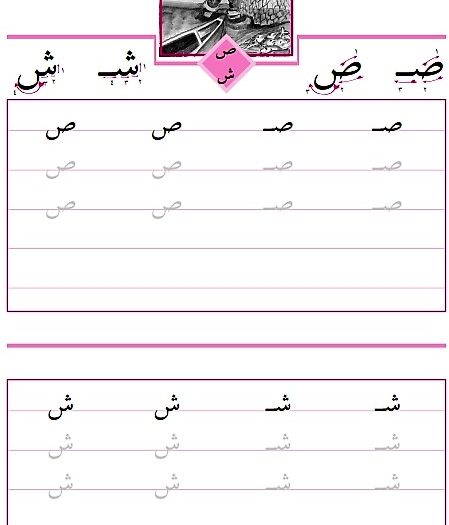 ص
ش
صـ ص شـ ش
صـ صـ ص ص
صـ صـ ص ص
صـ صـ ص ص
شـ شـ ش ش
شـ شـ ش ش
شـ شـ ش ش